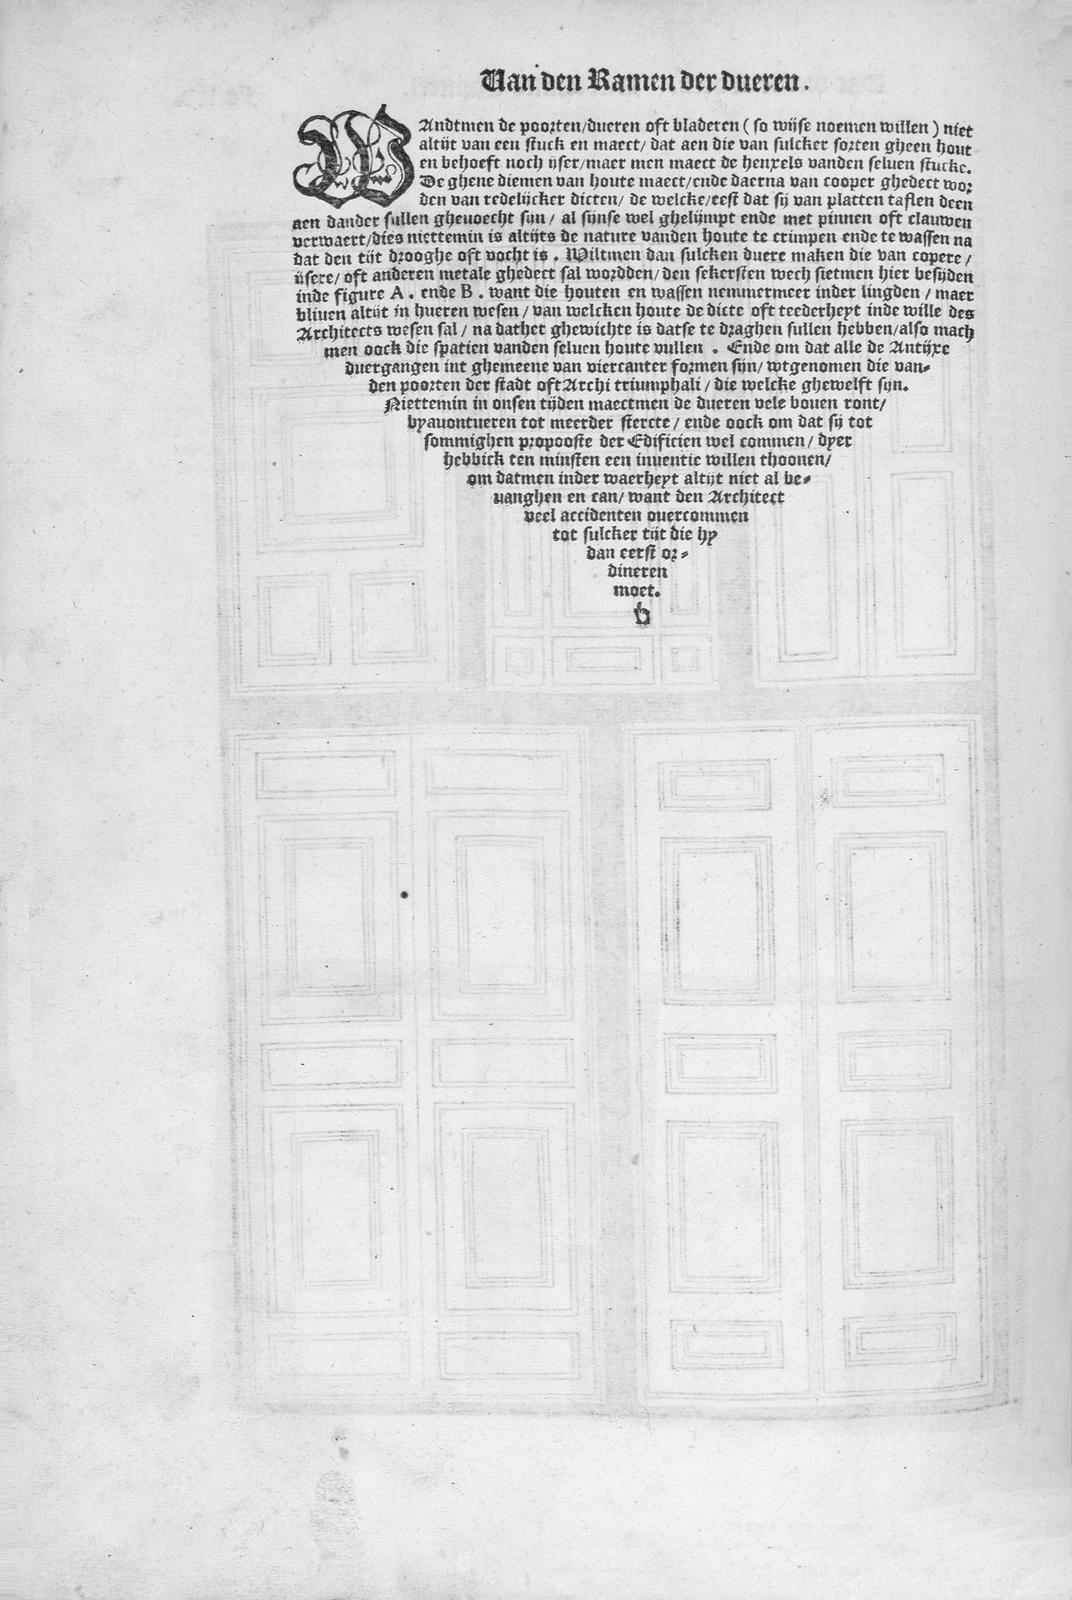 Van den Ramen der dueren.
WAndtmen de poorten/dueren oft bladeren (so wijse noemen willen) niet
altijt van een stuck en maect/ dat aen die van sulcker sorten gheen hout
en behoeft noch ijser/maer men maect de henxels vanden seluen stucke.
De ghene diemen van houte maect/ende daerna van cooper ghedect wor
den van redelijcker dicten/ de welcke/eest dat sij van platten taflen deen
aen dander sullen gheuoecht sijn/ al sijnse wel ghelijmpt ende met pinnen oft clauwen
verwaert/dies niettemin is altijts de nature vanden houte te crimpen ende te wassen na
dat den tijt drooghe oft vocht is. Wiltmen dan sulcken duere maken die van copere/
ijsere/ oft anderen metale ghedect sal wordden/den sekersten wech sietmen hier besijden
inde figure A. ende B. want die houten en wassen nemmermeer inder lingden/ maer
bliuen altijt in hueren wesen/ van welcken houte de dicte oft teederheyt inde wille des
Architects wesen sal/ na dathet ghewichte is datse te draghen sullen hebben/also mach
men oock die spatien vanden seluen houte vullen. Ende om dat alle de Antijxe
duergangen int ghemeene van viercanter formen sijn/ wtgenomen die van-
den poorten der stadt oft Archi triumphali/ die welcke ghewelft sijn.
Niettemin in onsen tijden maectmen de dueren vele bouen ront/
byauontueren tot meerder stercte/ ende oock om dat sij tot
sommighen propooste der Edificien wel commen/ dyer
hebbick ten minsten een inuentie willen thoonen/
om datmen inder waerheyt altijt niet al be-
uanghen en can/ want den Architect
veel accidenten ouercommen
tot sulcker tijt die hy
dan eerst or-
dineren
moet.